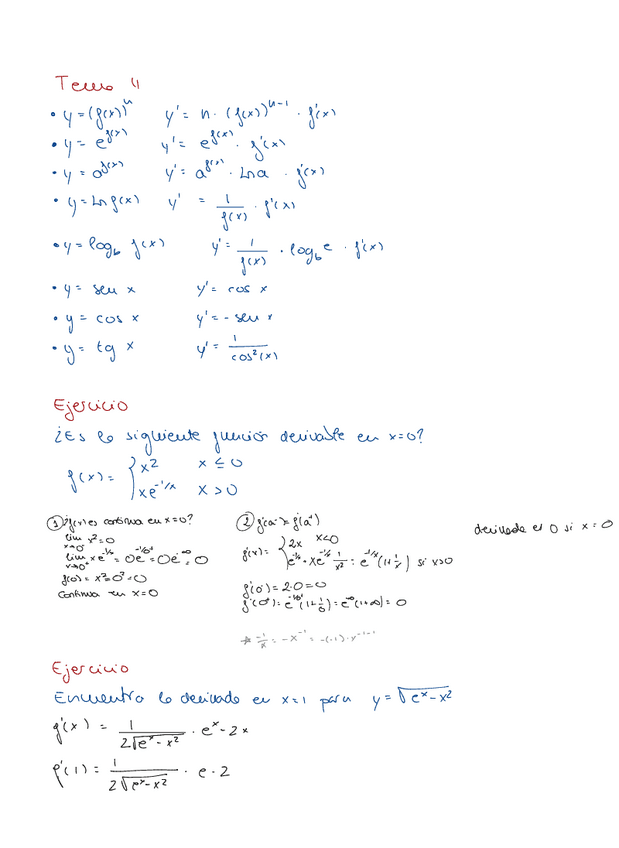 Tema 4
• y = (f(x))^n    y' = n · (f(x))^{n-1} · f'(x)
• y = e^{f(x)}    y' = e^{f(x)} · f'(x)
• y = a^{f(x)}    y' = a^{f(x)} · Ln a · f'(x)
• y = Ln f(x)    y' = 1/f(x) · f'(x)
• y = log_b f(x)    y' = 1/f(x) · log_b e · f'(x)
• y = sen x    y' = cos x
• y = cos x    y' = - sen x
• y = tg x    y' = 1/cos²(x)
Ejercicio
¿Es la siguiente función derivable en x=0?
f(x) = { x²    x ≤ 0
xe^{-1/x}    x > 0
① ¿f(x) es continua en x=0?
lim x→0⁻ x² = 0
lim x→0⁺ xe^{-1/x} = 0e^{-1/0⁺} = 0e^{-∞} = 0
f(0) = x² = 0² = 0
Continua en x=0
② f'(a⁻) = f'(a⁺)
f'(x) = { 2x    x<0
e^{-1/x} + xe^{-1/x} 1/x² = e^{-1/x}(1+1/x) si x>0
f'(0⁻) = 2·0 = 0
f'(0⁺) = e^{-1/0⁺}(1+1/0) = e^{-∞}(1+∞) = 0
derivada es 0 si x = 0
* -1/x = -x^{-1} = -(-1)·x^{-1-1}
Ejercicio
Encuentra la derivada en x=1 para y = √(e^x - x²)
f'(x) = 1/(2√(e^x - x²)) · e^x - 2x
f'(1) = 1/(2√(e^x - x²)) · e · 2